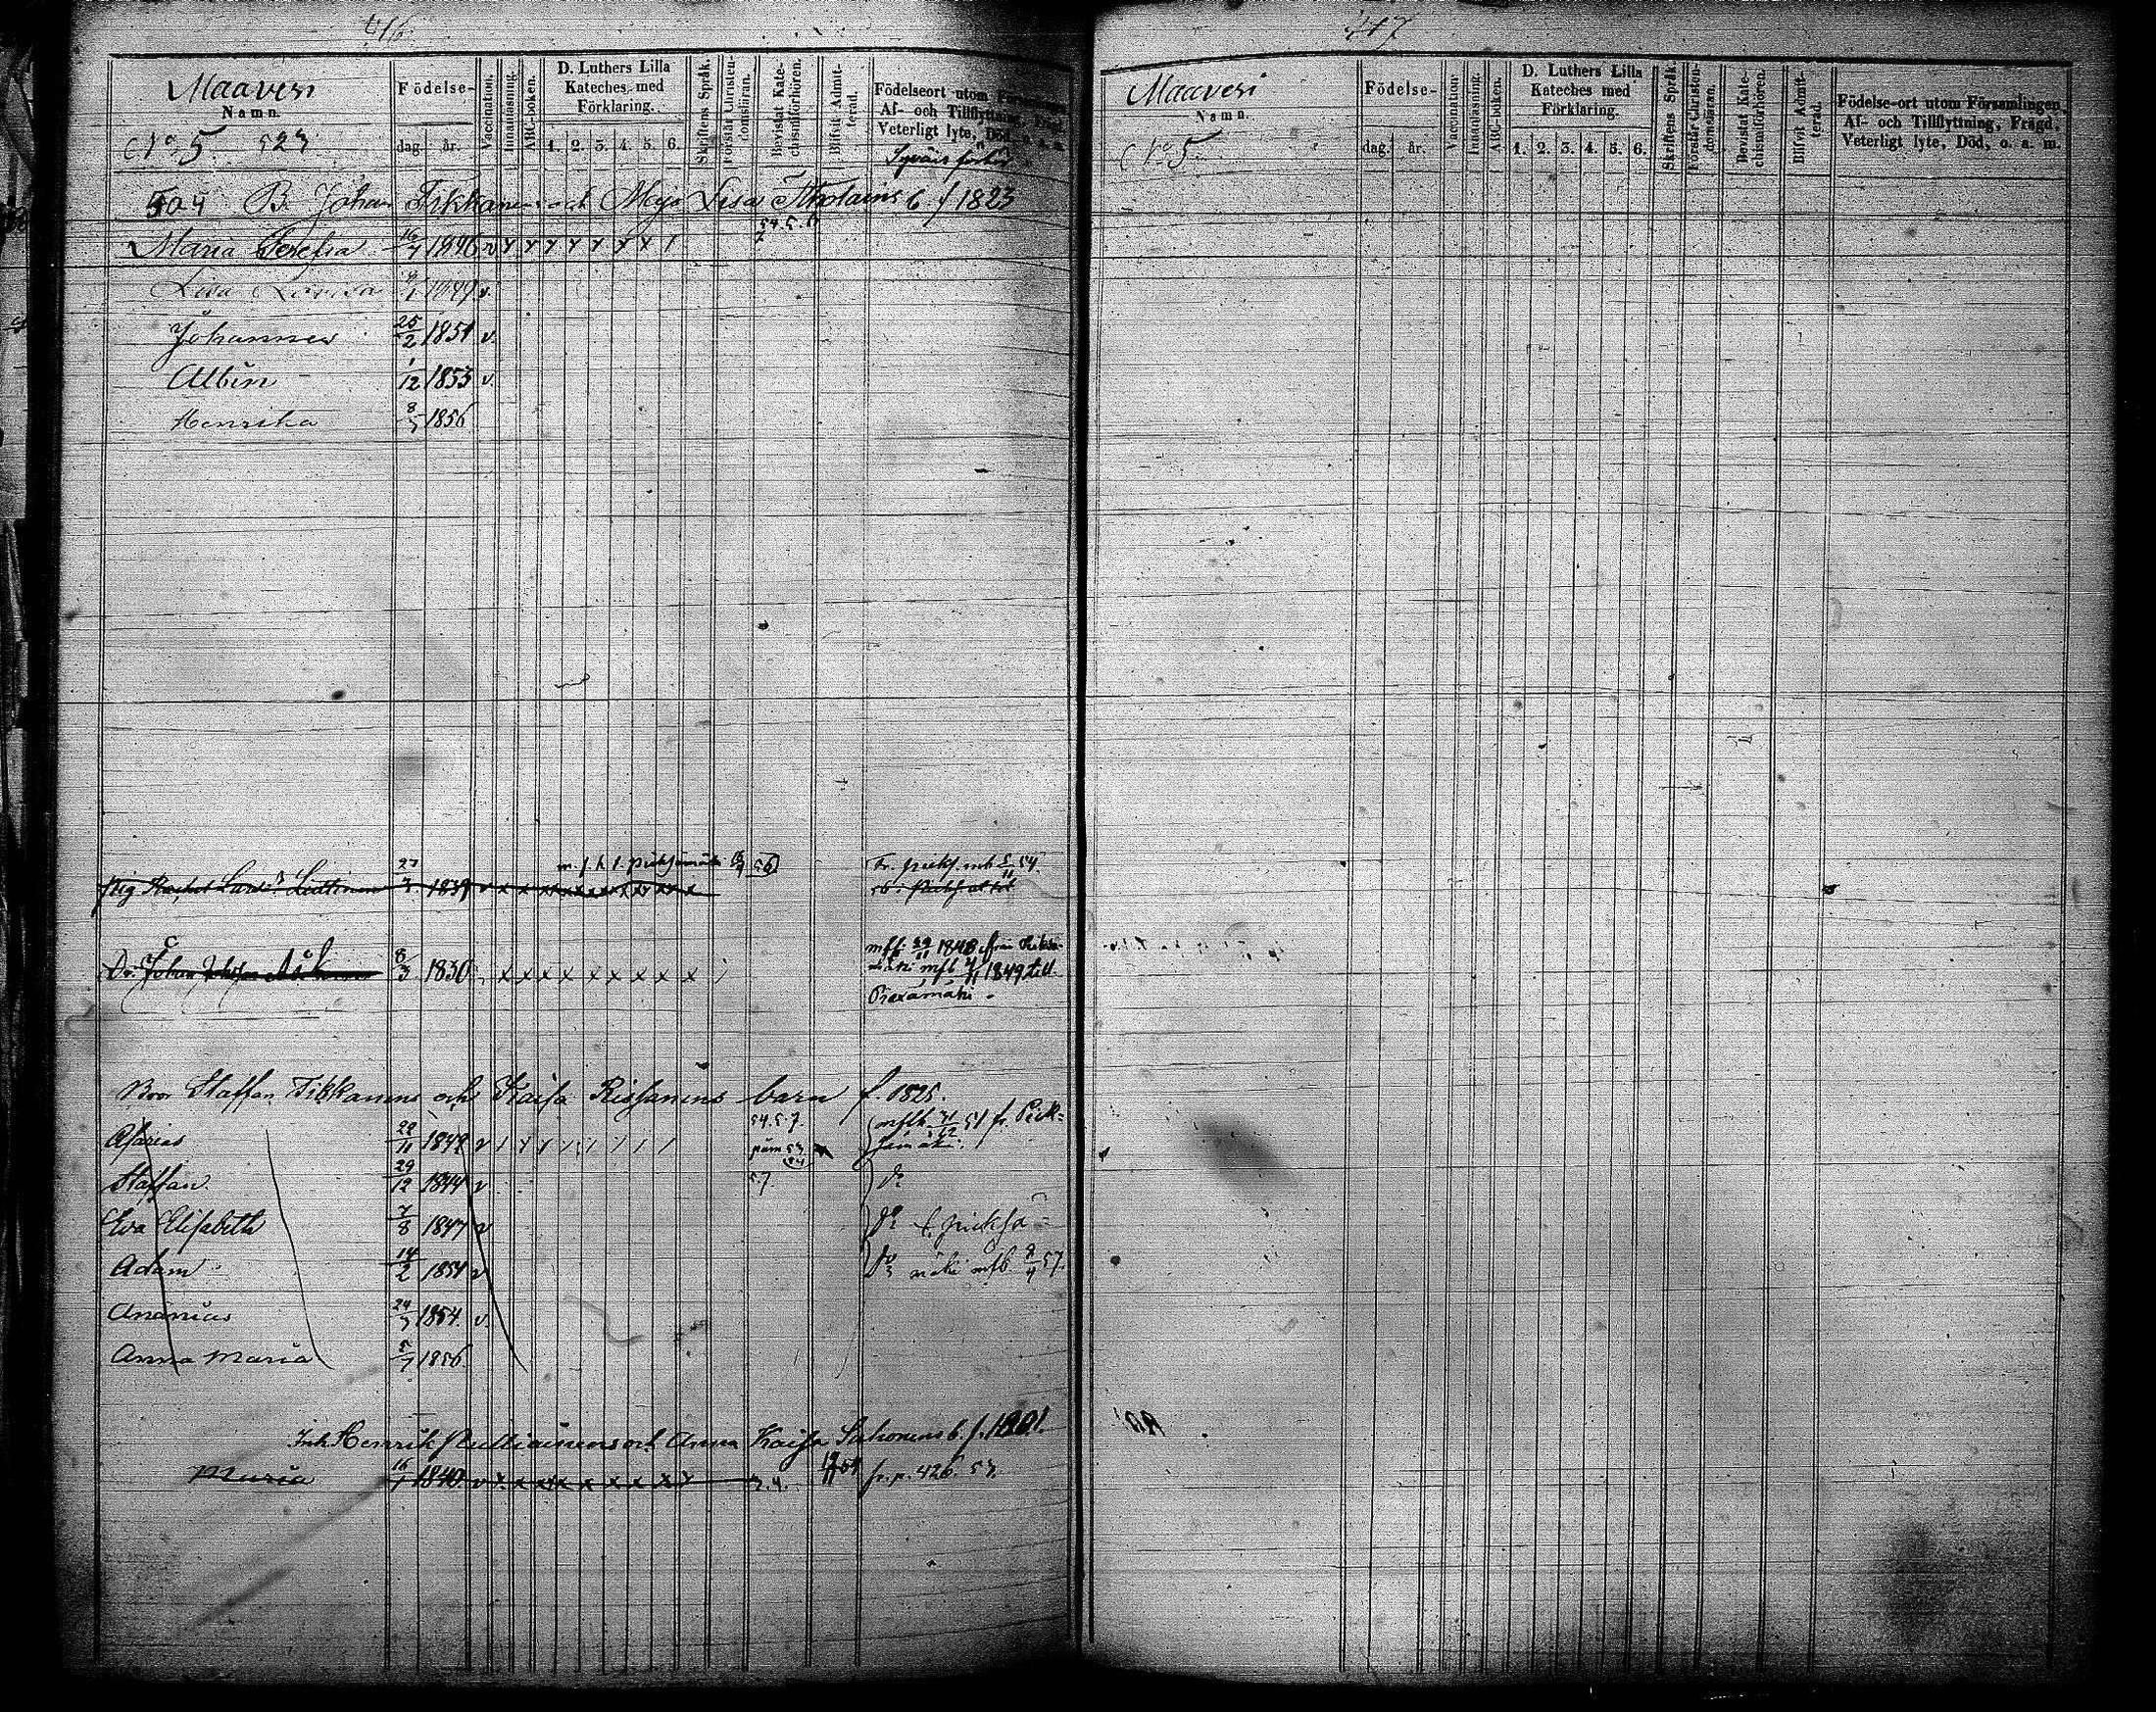 417
Maavesi
Namn.
No 5 523
Födelse-
dag. år.
Vaccination.
Innanläsning.
ABC-boken.
D. Luthers Lilla
Kateches med
Förklaring.
1. 2. 3. 4. 5. 6.
Skriftens Språk.
Förstår Christen-
domsläran.
Bevistat Kate-
chismiförhören.
Blifvit Admit-
terad.
Födelseort utom Församlingen,
Af- och Tillflyttning, Frägd,
Veterligt lyte, Död, o. a. m.
504 B. Johan Tikkanens och Maja Lisa b. f 1823
54.5.6
Maria Serefia 16/7 1846 v
Lisa Lovisa 1849 v.
Johannes 25/2 1851 v.
Albin 1/12 1853 v.
Henrika 8/5 1856
m. f. b. t. Pieksämäki 56
Fr. Pieks. mb 5/11 54.
Pig 27/3 1839 v x x x x x x x x x
Dr. Johan 8/3 1830 x x x x x x x x x
mfb. 29/11 1848 från
mfb 4/11 1849 till
Piexämäki.
Bror Staffan Tikkanens och Kaisa Rissanens barn f. 1825.
54.5.7.
mfb. 31/12 51 fr. Piek-
Asarias 22/11 1842 v
sämäki.
Staffan 29/12 1844 v 5.7. do
Eva Elisabeth 7/8 1847 v do t. Pieksä-
Adam 14/2 1851 v do mäki mfb. 8/4 57.
Ananias 24/3 1854. v.
Anna Maria 5/7 1856.
Inh Henrik Pulliainens och Anna Kaisa b. f. 1801.
Maria 16/1 1840 v x x x x x x x x fr. p. 426. 53.
Maavesi
Namn.
No 5.
Födelse-
dag. år.
Vaccination
Innanläsning.
ABC-boken.
D. Luthers Lilla
Kateches med
Förklaring.
1. 2. 3. 4. 5. 6.
Skriftens Språk.
Förstår Christen-
domsläran.
Bevistat Kate-
chismiförhören.
Blifvit Admit-
terad.
Födelse-ort utom Församlingen,
Af- och Tillflyttning, Frägd,
Veterligt lyte, Död, o. a. m.